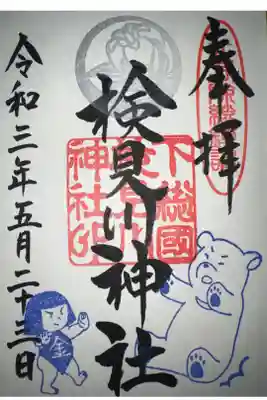 奉拝
検見川神社
下総國
検見川
神社印
令和三年五月二十三日
金